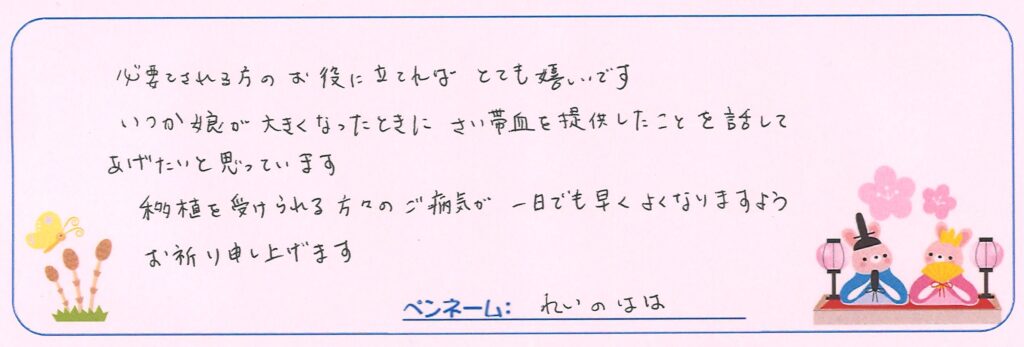 必要とされる方のお役に立てれば とても嬉しいです
いつか娘が大きくなったときに さい帯血を提供したことを話して
あげたいと思っています
移植を受けられる方々のご病気が 一日でも早くよくなりますよう
お祈り申し上げます
ペンネーム: れいのはは